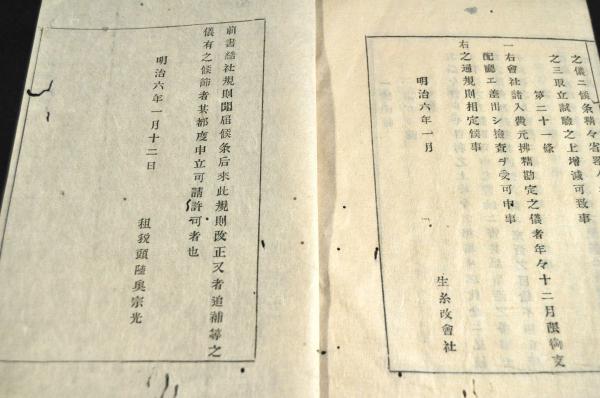 之儀ニ候条精々省
之三取立試驗之上增減可致事
第二十一条
一右會社諸入費元拂精勘定之儀者年々十二月限御支
配廳エ差出シ撿査ヲ受可申事
右之通規則相定候事
明治六年一月
生糸改會社
前書結社規則聞届候条后来此規則改正又者追補等之
儀有之候節者其都度申立可請許可者也
明治六年一月十二日
租税頭陸奥宗光